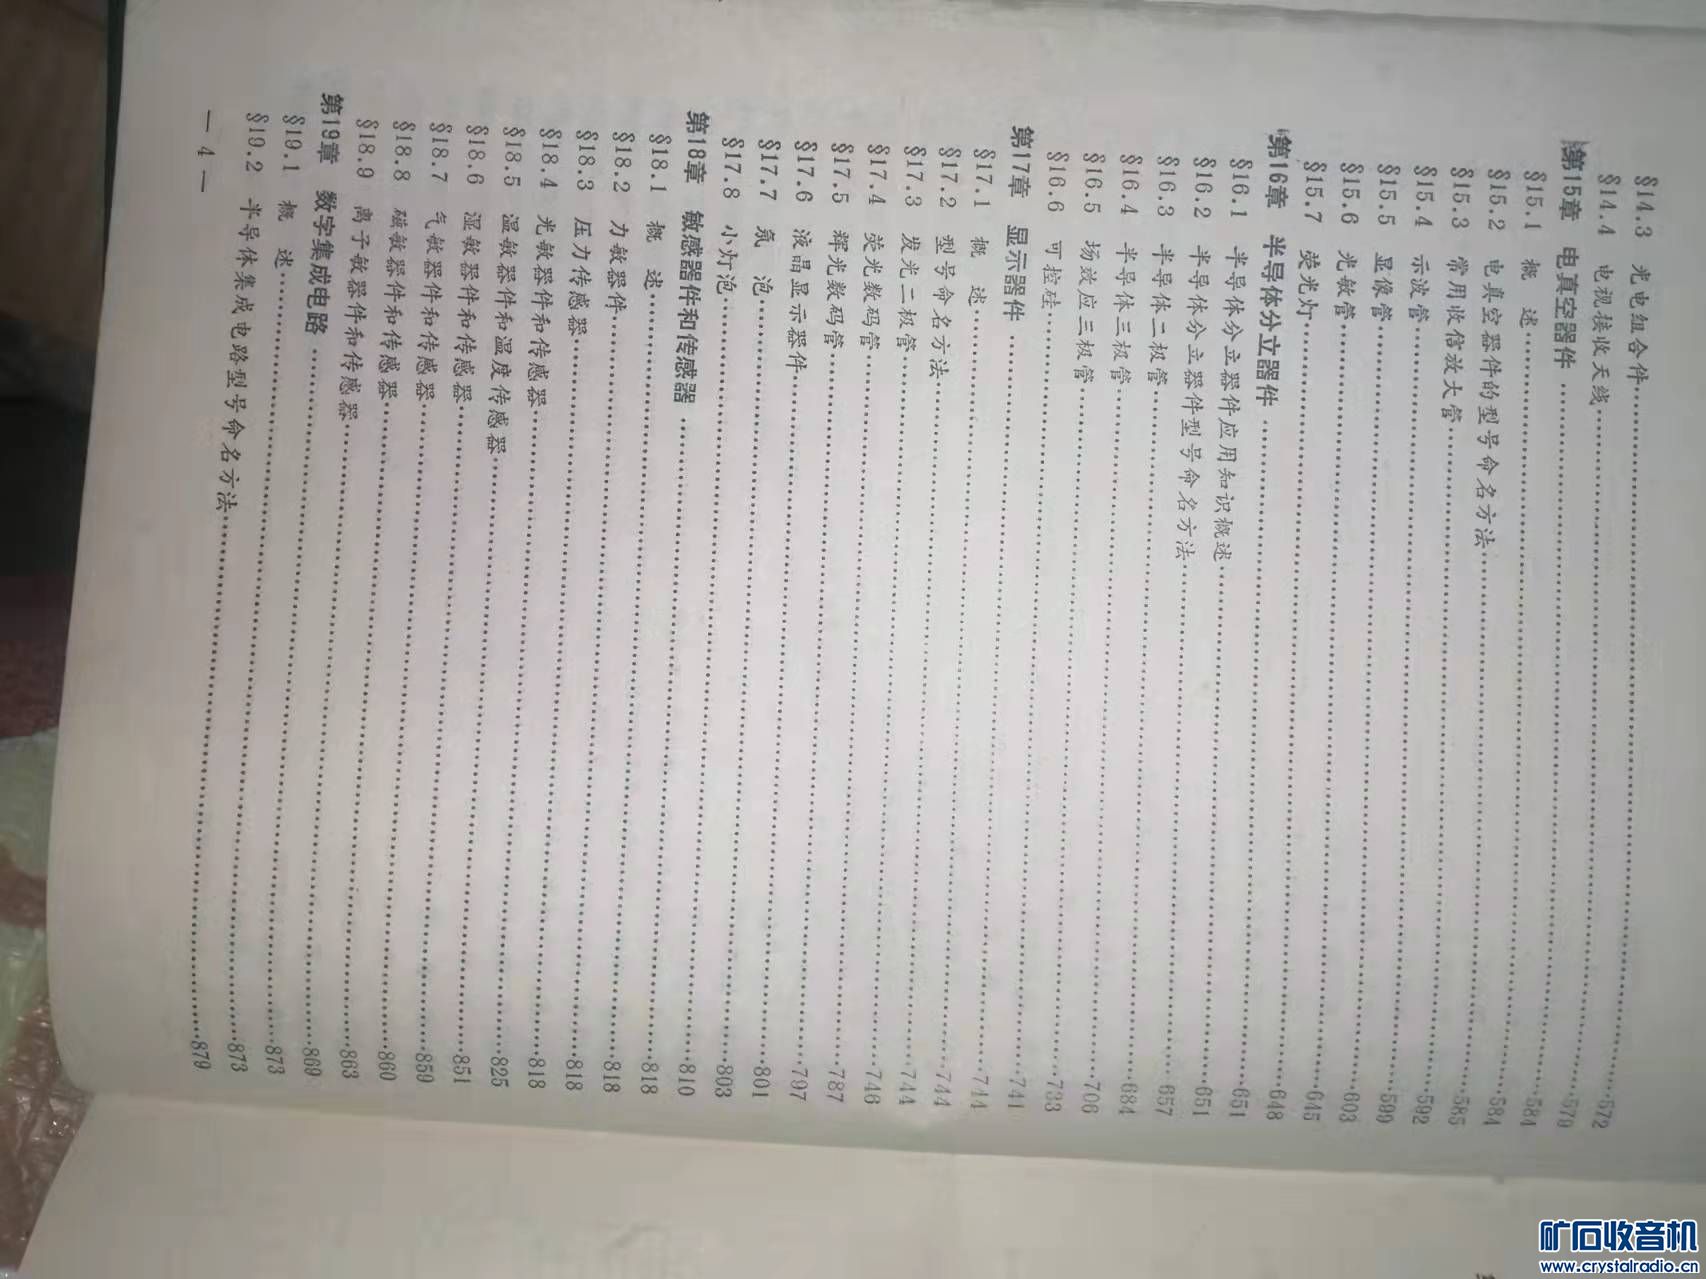 §14.3 光电组合件……572
§14.4 电视接收天线……579
第15章 电真空器件……584
§15.1 概 述……584
§15.2 电真空器件的型号命名方法……585
§15.3 常用收信放大管……592
§15.4 示波管……599
§15.5 显像管……603
§15.6 光敏管……645
§15.7 荧光灯……648
第16章 半导体分立器件……651
§16.1 半导体分立器件应用知识概述……651
§16.2 半导体分立器件型号命名方法……657
§16.3 半导体二极管……684
§16.4 半导体三极管……706
§16.5 场效应三极管……733
§16.6 可控硅……741
第17章 显示器件……744
§17.1 概 述……744
§17.2 型号命名方法……744
§17.3 发光二极管……746
§17.4 荧光数码管……787
§17.5 辉光数码管……797
§17.6 液晶显示器件……801
§17.7 氖 泡……803
§17.8 小灯泡……810
第18章 敏感器件和传感器……818
§18.1 概 述……818
§18.2 力敏器件……818
§18.3 压力传感器……818
§18.4 光敏器件和传感器……825
§18.5 温敏器件和温度传感器……851
§18.6 湿敏器件和传感器……859
§18.7 气敏器件和传感器……860
§18.8 磁敏器件和传感器……863
§18.9 离子敏器件和传感器……869
第19章 数字集成电路……873
§19.1 概 述……873
§19.2 半导体集成电路型号命名方法……879
— 4 —
矿石收音机
www.crystalradio.cn